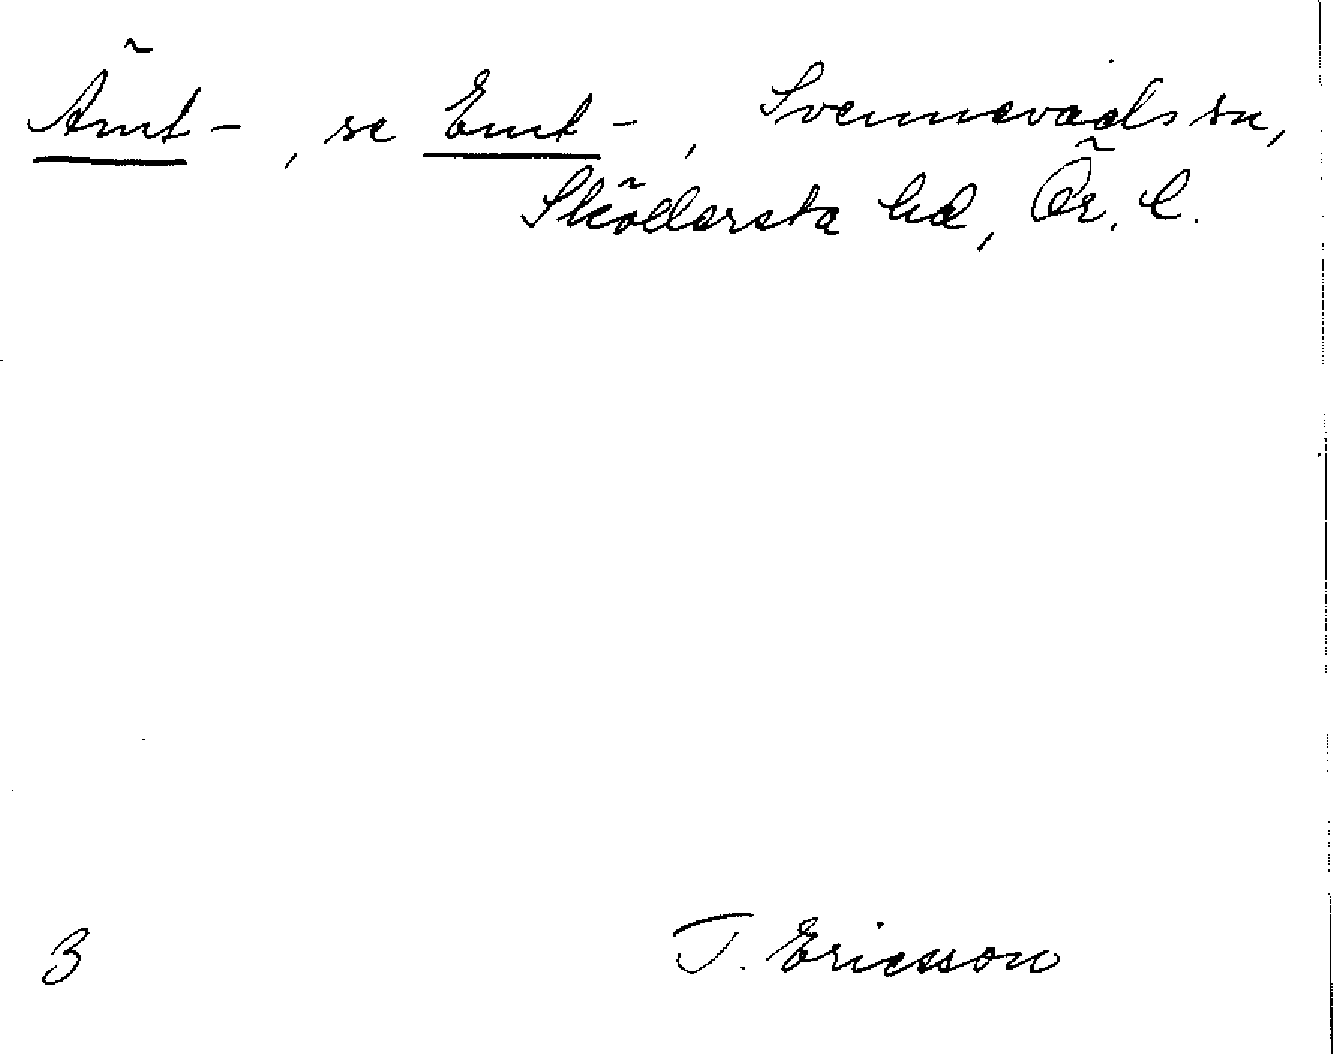 Ämt-, se Emt-, Svennevads sn,
Sköllersta hd, Ör. l.
3 T. Ericsson